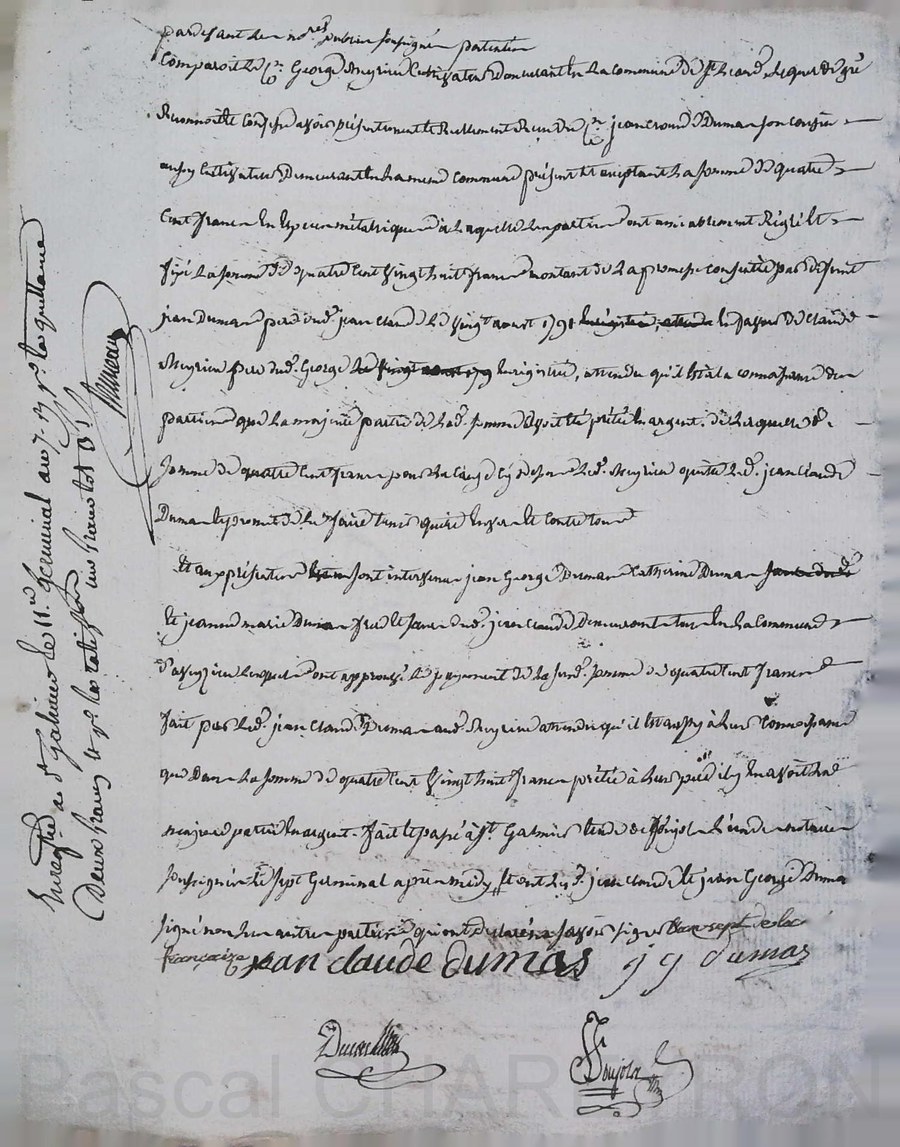 pardevant les no.res publics soussignés patentés
Comparoit le C.en George Meyrieu Cultivateur demeurant en la commune de St lequel de gré
Reconnoit et confesse avoir présentement et reellement Reçu du C.en jean Claude Dumas son
aussy Cultivateur Demeurant en la meme commune présent et acceptant la somme de quatre
Cent francs En Espèces métalliques à laquelle les parties ont amiablement Réglé et
fixé la somme de quatre cent vingt huit francs montant de la promesse consentie par defunt
jean Dumas père dud. jean Claude le vingt aoust 179 en faveur de Claude
Meyrieu père dud. George le vingt aoust 179 Enregistrée, attendu qu'il est à la connoissance des
parties que la majeure partie de lad. somme avoit été prêtée en argent. de laquelle de.
somme de quatre cent francs pour la cause cy dessus led. Meyrieu quitte led. jean Claude
Dumas et promet de le faire tenir quitte Envers et contre tous
Et aux présentes sont intervenus jean George Dumas Catherine Dumas
Et jeanne marie Dumas frère et soeurs dud. jean Claude Demeurants tous En la Commune
lesquels ont approuvé le payement de la susd. somme de quatre cent francs
fait par led. jean Claude Dumas aud. Meyrieu attendu qu'il est aussy à leur connoissance
que dans la somme de quatre cent vingt huit francs prêtée à leur père il y en avoit la
majeure partie en argent. fait et passé à St Galmier Etude de Ponjol l'un des notaires
soussignés le sept Germinal après midy, et ont led. jean Claude et jean George Dumas
signé non les autres parties qui ont déclaré ne savoir signer l'an sept de la
française
jean claude dumas j g dumas
Enregistré à St Galmier le 11 Germinal an 7. pr. la quittance
Deux francs et pr. la ratification un franc